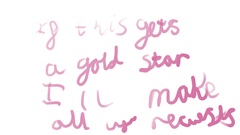 If this gets
a gold star
I ll make
all ur requests